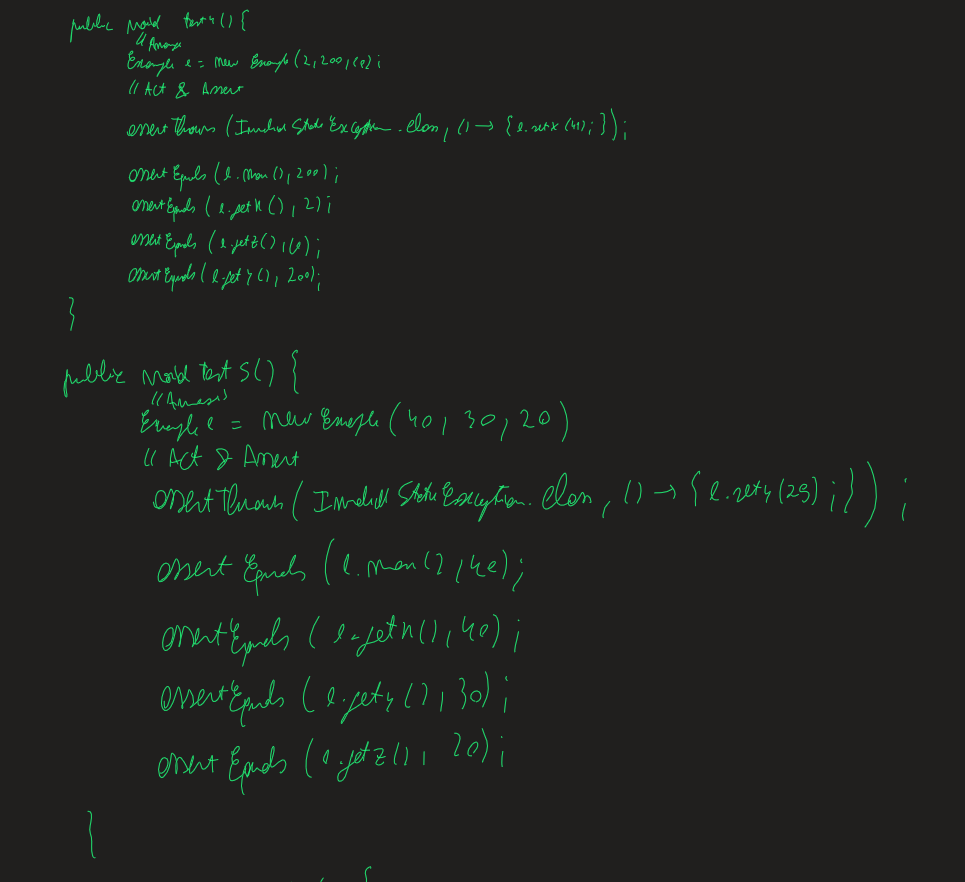 public void test4() {
// Arrange
Example e = new Example(2, 200, 10);
// Act & Assert
assertThrows (InvalidStateException.class, () → {e.setX(41);});
assertEquals (e.max(), 200);
assertEquals (e.getX(), 2);
assertEquals (e.getZ(), 10);
assertEquals (e.getY(), 200);
}
public void test5() {
// Arrange
Example e = new Example (40, 30, 20)
// Act & Assert
assertThrows (InvalidStateException.class, () → {e.setY(25);});
assertEquals (e.max(), 40);
assertEquals (e.getX(), 40);
assertEquals (e.getY(), 30);
assertEquals (e.getZ(), 20);
}
{